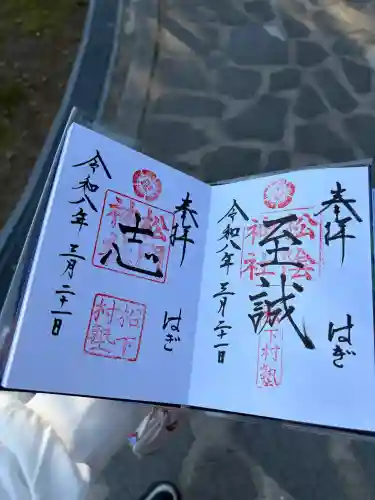 奉拝
志
松陰神社
松下村塾
令和八年 三月二十一日
はぎ
奉拝
至誠
松陰神社
松下村塾
令和八年 三月二十一日
はぎ